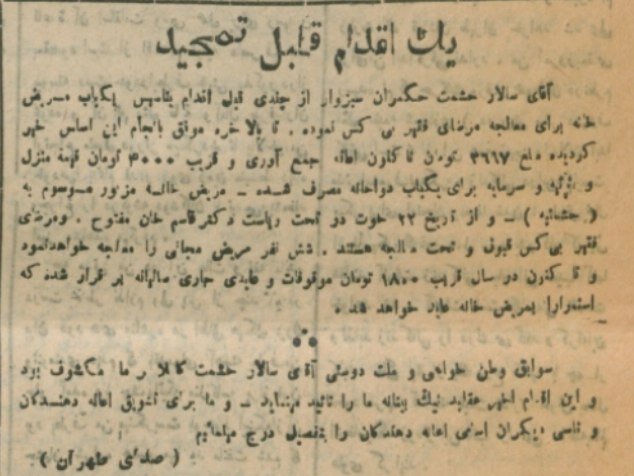 یک اقدام قابل تمجید
آقای سالار حشمت حکمران سبزوار از چندی قبل اقدام بتاسیس یکباب مریض
خانه برای معالجه مرضای فقیر بی کس نموده . تا بالاخره موفق بانجام این اساس خیر
گردیده مبلغ ۳۶۶۷ تومان تا کنون اعانه جمع آوری و قریب ۳۰۰۰ تومان قیمه منزل
و اثاثیه و سرمایه برای یکباب دواخانه مصرف شده ـ مریض خانه مزبور موسوم به
( حشمتیه ) ـ و از تاریخ ۲۲ حوت در تحت ریاست دکتر قاسم خان مفتوح . ومرضای
فقیر بی کس قبول و تحت معالجه هستند . شش نفر مریض مجانی را معالجه خواهد نمود
و تا کنون در سال قریب ۱۸۰۰ تومان موقوفات و عایدی جاری سالیانه بر قرار شده که
استمرارا بمریض خانه عاید خواهد شد .
سوابق وطن خواهی و ملت دوستی آقای سالار حشمت کاملا بر ما مکشوف بود
و این اقدام اخیر عقاید نیک بینانه ما را تائید مینماید ـ و ما برای تشویق اعانه دهندگان
و تاسی دیگران اسامی اعانه دهندگان را بتفصیل درج مینمائیم
( صدای طهران )